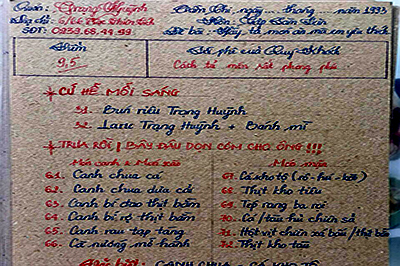 Quán: Trọng Huỳnh
Địa chỉ: 6/66
SĐT: 0939.68.49.99
ngày... tháng... năm 1993
Đề bài: Hãy tả món ăn mà em yêu thích
Điểm
Lời phê của Quý Khách
9,5
Cách tả món rất phong phú
* CỨ HỄ MỖI SÁNG
31. Bún riêu Trọng Huỳnh
32. Lagu Trọng Huỳnh + Bánh mì
* TRƯA RỒI! BÂY ĐÂU DỌN CƠM CHO ÔNG!!!
Món canh & Món xào
61. Canh chua cá
62. Canh chua dưa cải
63. Canh bí đao thịt bằm
64. Canh bí rợ thịt bằm
65. Canh rau tập tàng
66. Cà nướng mỡ hành
Món mặn
67. Cá kho tộ (rô - hú - lóc)
68. Thịt kho tiêu
69. Tép rang ba rọi
70. Cá / tàu hủ chiên sả
71. Hột vịt chiên xá bấu / thịt bằm
72. Thịt kho tàu
Đặc biệt: CANH CHUA - CÁ KHO TỘ